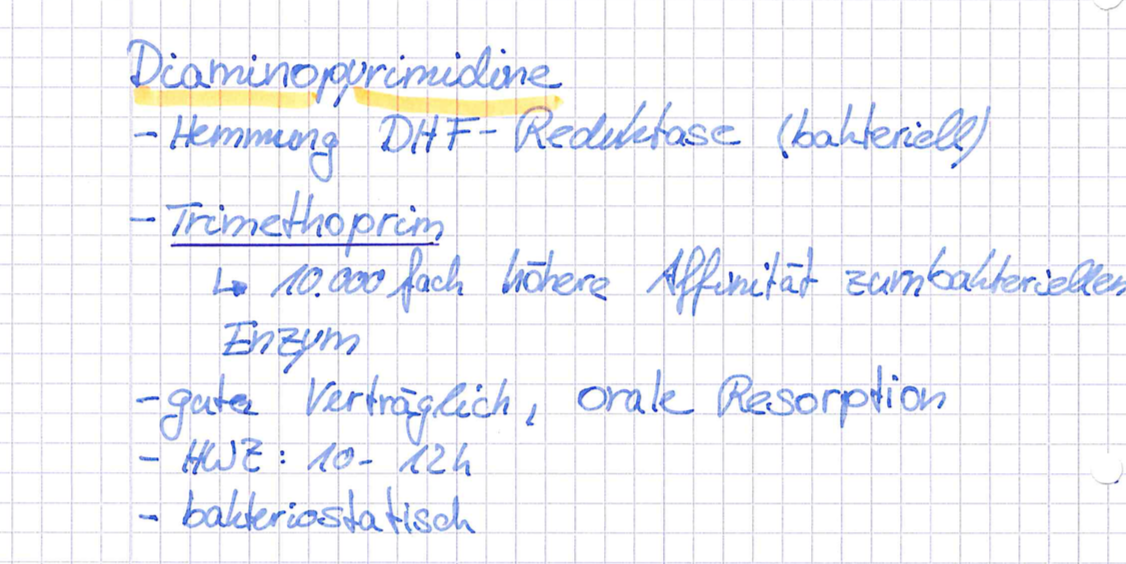 Diaminopyrimidine
- Hemmung DHF-Reduktase (bakteriell)
- Trimethoprim
↳ 10.000 fach höhere Affinität zum bakteriellen
Enzym
- gute Verträglich, orale Resorption
- HWZ: 10-12h
- bakteriostatisch